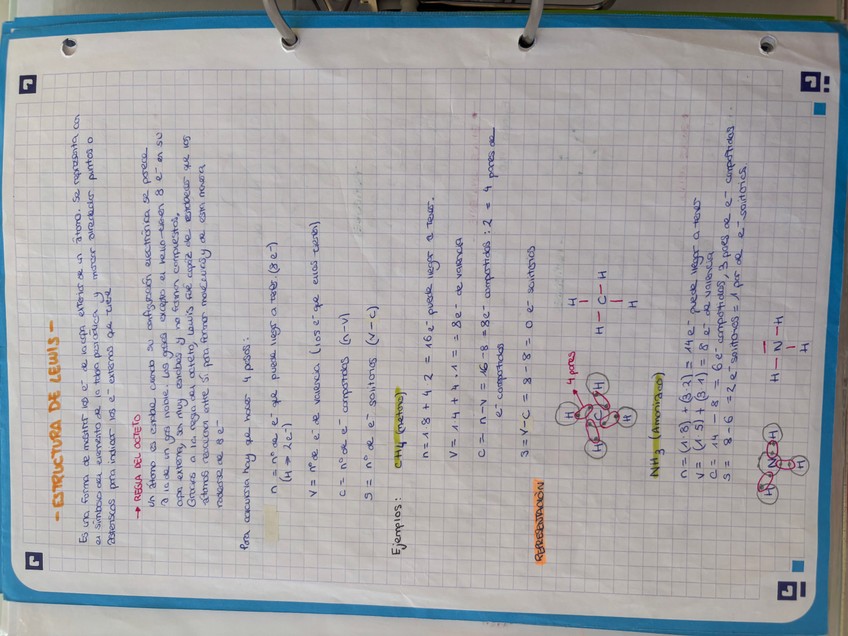 - ESTRUCTURA DE LEWIS -
Es una forma de mostrar los e⁻ de la capa exterior de un átomo. Se representa con
el símbolo del elemento de la tabla periódica y marcar alrededor puntos o
asteriscos para indicar los e⁻ externos que tiene
→ REGLA DEL OCTETO
Un átomo es estable cuando su configuración electrónica se parece
a la de un gas noble. Los gases excepto el helio tienen 8 e⁻ en su
capa externa, son muy estables y no forman compuestos.
Gracias a la regla del octeto, Lewis fue capaz de establecer que los
átomos reaccionan entre sí para formar moléculas y de esta manera
rodearse de 8 e⁻
Para calcularla hay que hacer 4 pasos:
n = nº de e⁻ que puede llegar a tener (8 e⁻)
(H → 2e⁻)
V = nº de e⁻ de valencia (los e⁻ que ellos tienen)
C = nº de e⁻ compartidos (n-V)
S = nº de e⁻ solitarios (V-C)
Ejemplos: CH₄ (metano)
n = 1·8 + 4·2 = 16 e⁻ puede llegar a tener.
V = 1·4 + 4·1 = 8 e⁻ de valencia
C = n-V = 16-8 = 8e⁻ compartidos : 2 = 4 pares de
e⁻ compartidos
S = V-C = 8-8 = 0 e⁻ solitarios
REPRESENTACIÓN
4 pares
H
H C H
H
H
H - C - H
H
NH₃ (Amoniaco)
n = (1·8) + (3·2) = 14 e⁻ puede llegar a tener
V = (1·5) + (3·1) = 8 e⁻ de valencia
C = 14 - 8 = 6 e⁻ compartidos, 3 pares de e⁻ compartidos
S = 8 - 6 = 2 e⁻ solitarios = 1 par de e⁻ solitarios.
H N H
H
H - N - H
H